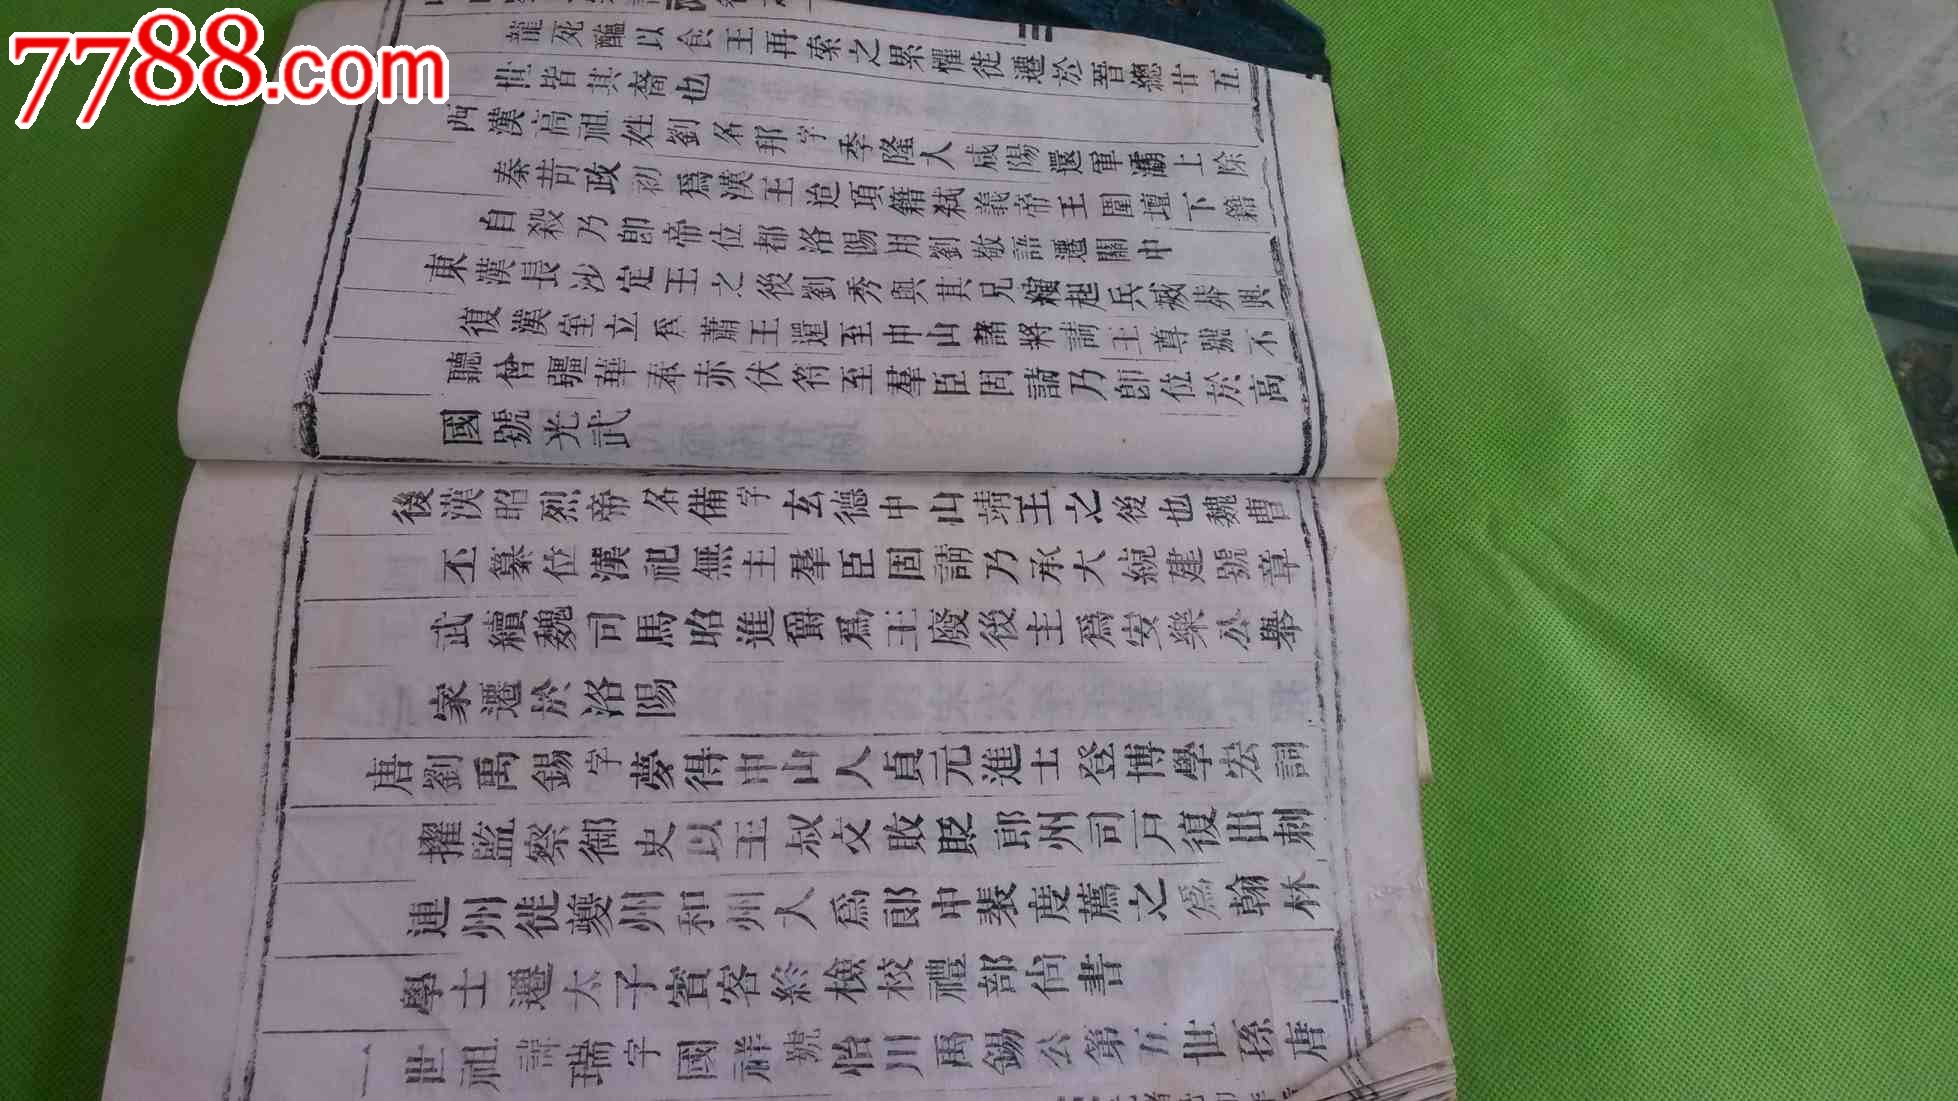 7788.com
龍死醢以食王再索之累懼徙遷於晉總廿五
世皆其裔也
西漢高祖姓劉名邦字季隆大咸陽還軍灞上除
秦苛政初爲漢王迨項籍弒義帝王圍壇下籍
自殺乃即帝位都洛陽用劉敬語遷關中
東漢長沙定王之後劉秀與其兄縯起兵滅莽興
復漢室立爲蕭王還至中山諸將請王尊號不
聽會彊華奉赤伏符至羣臣固請乃即位於高
國號光武
後漢昭烈帝名備字玄德中山靖王之後也魏曹
丕篡位漢祀無主羣臣固請乃承大統建號章
武續魏司馬昭進爵爲王廢後主爲安樂公舉
家遷於洛陽
唐劉禹錫字夢得中山人貞元進士登博學宏詞
擢監察御史以王叔文敗貶郎州司戶復出刺
連州徙夔州和州入爲郎中裴度薦之爲翰林
學士遷太子賓客終檢校禮部尚書
一世祖諱瑞字國祥號怡川禹錫公第五世孫唐